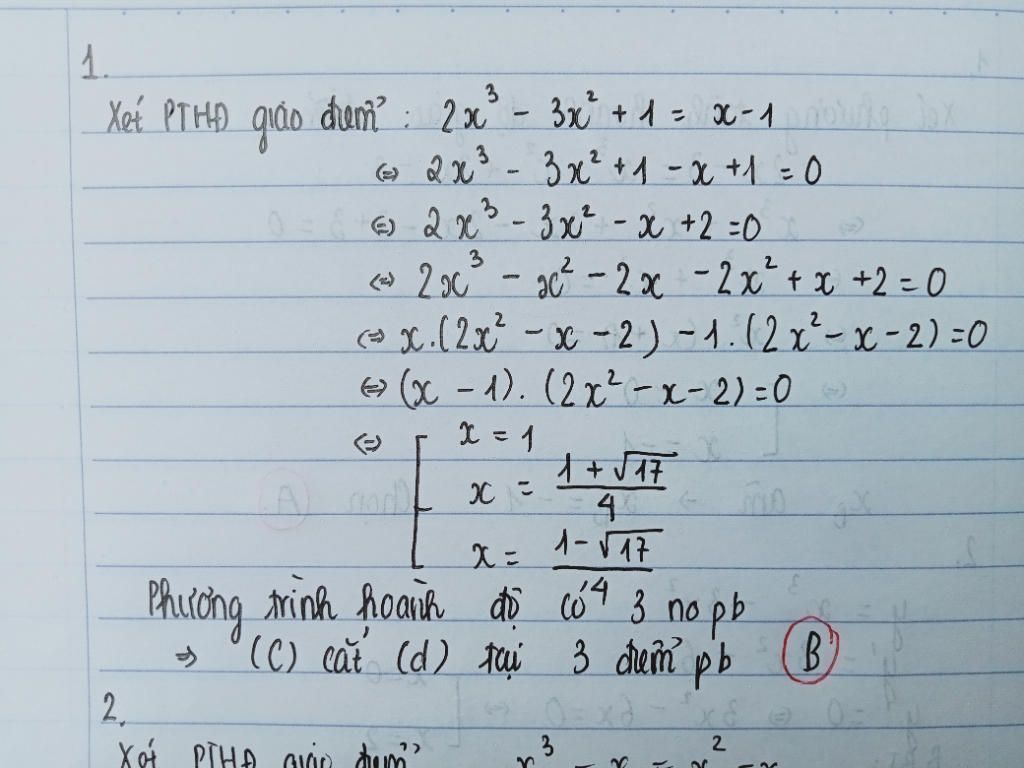 1.
Xét PTHĐ giao điểm : 2x³ - 3x² + 1 = x - 1
⇔ 2x³ - 3x² + 1 - x + 1 = 0
⇔ 2x³ - 3x² - x + 2 = 0
⇔ 2x³ - x² - 2x - 2x² + x + 2 = 0
⇔ x.(2x² - x - 2) - 1.(2x² - x - 2) = 0
⇔ (x - 1).(2x² - x - 2) = 0
⇔ [ x = 1
x = (1 + √17)/4
x = (1 - √17)/4
Phương trình hoành độ có 3 no pb
⇒ (C) cắt (d) tại 3 điểm pb B
2.
Xét PTHĐ giao điểm x³ - x = x² - x